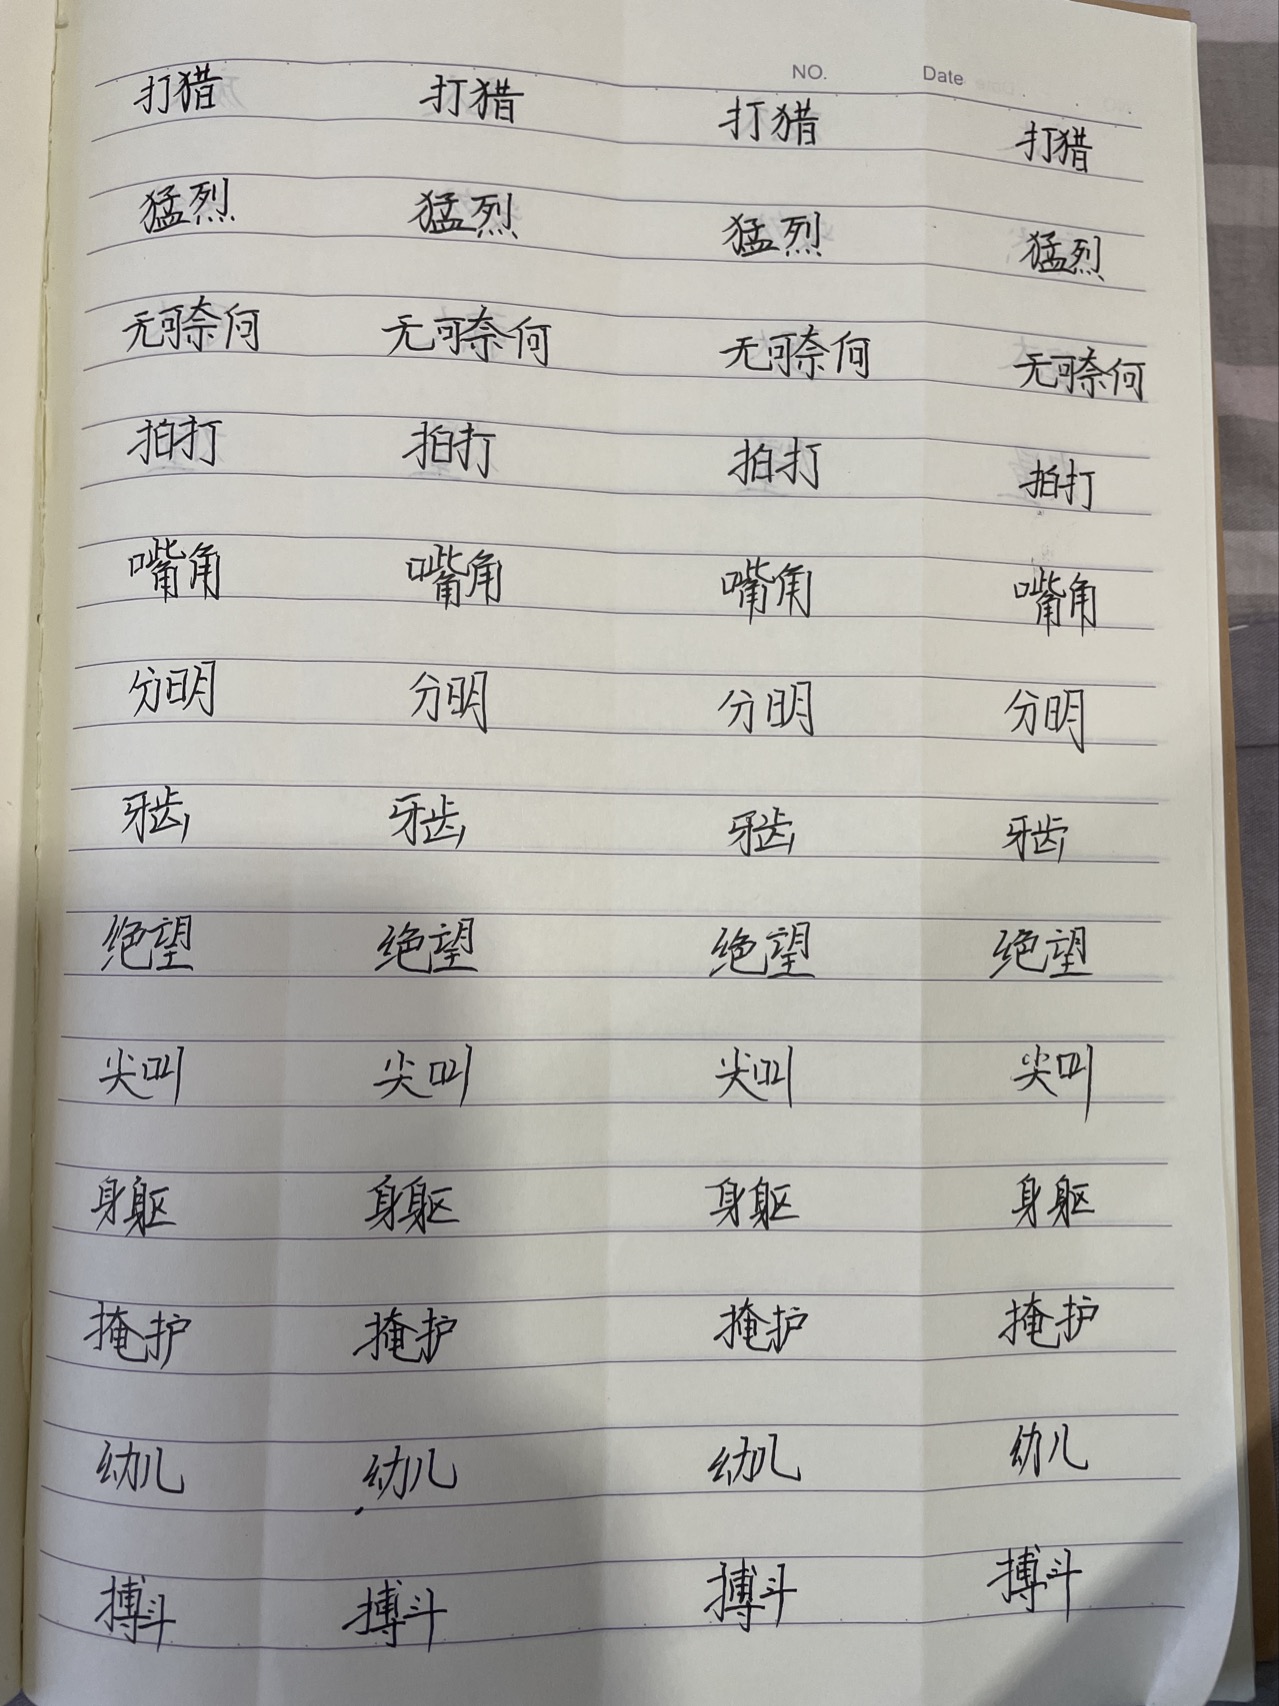 NO. Date
打猎 打猎 打猎 打猎
猛烈 猛烈 猛烈 猛烈
无可奈何 无可奈何 无可奈何 无可奈何
拍打 拍打 拍打 拍打
嘴角 嘴角 嘴角 嘴角
分明 分明 分明 分明
牙齿 牙齿 牙齿 牙齿
绝望 绝望 绝望 绝望
尖叫 尖叫 尖叫 尖叫
身躯 身躯 身躯 身躯
掩护 掩护 掩护 掩护
幼儿 幼儿 幼儿 幼儿
搏斗 搏斗 搏斗 搏斗